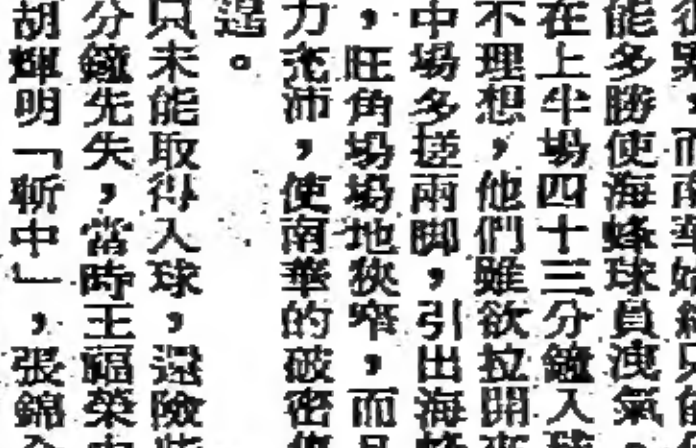 能多勝使海蜂球員洩氣
在上半場四十三分鐘入
不理想，他們雖欲拉開
中場多搓兩脚，引出海
，旺角場場地狹窄，而
力充沛，使南華的破密
。
只未能取得入球，還險
分鐘先失，當時王福榮
胡輝明「斬中」，張錦